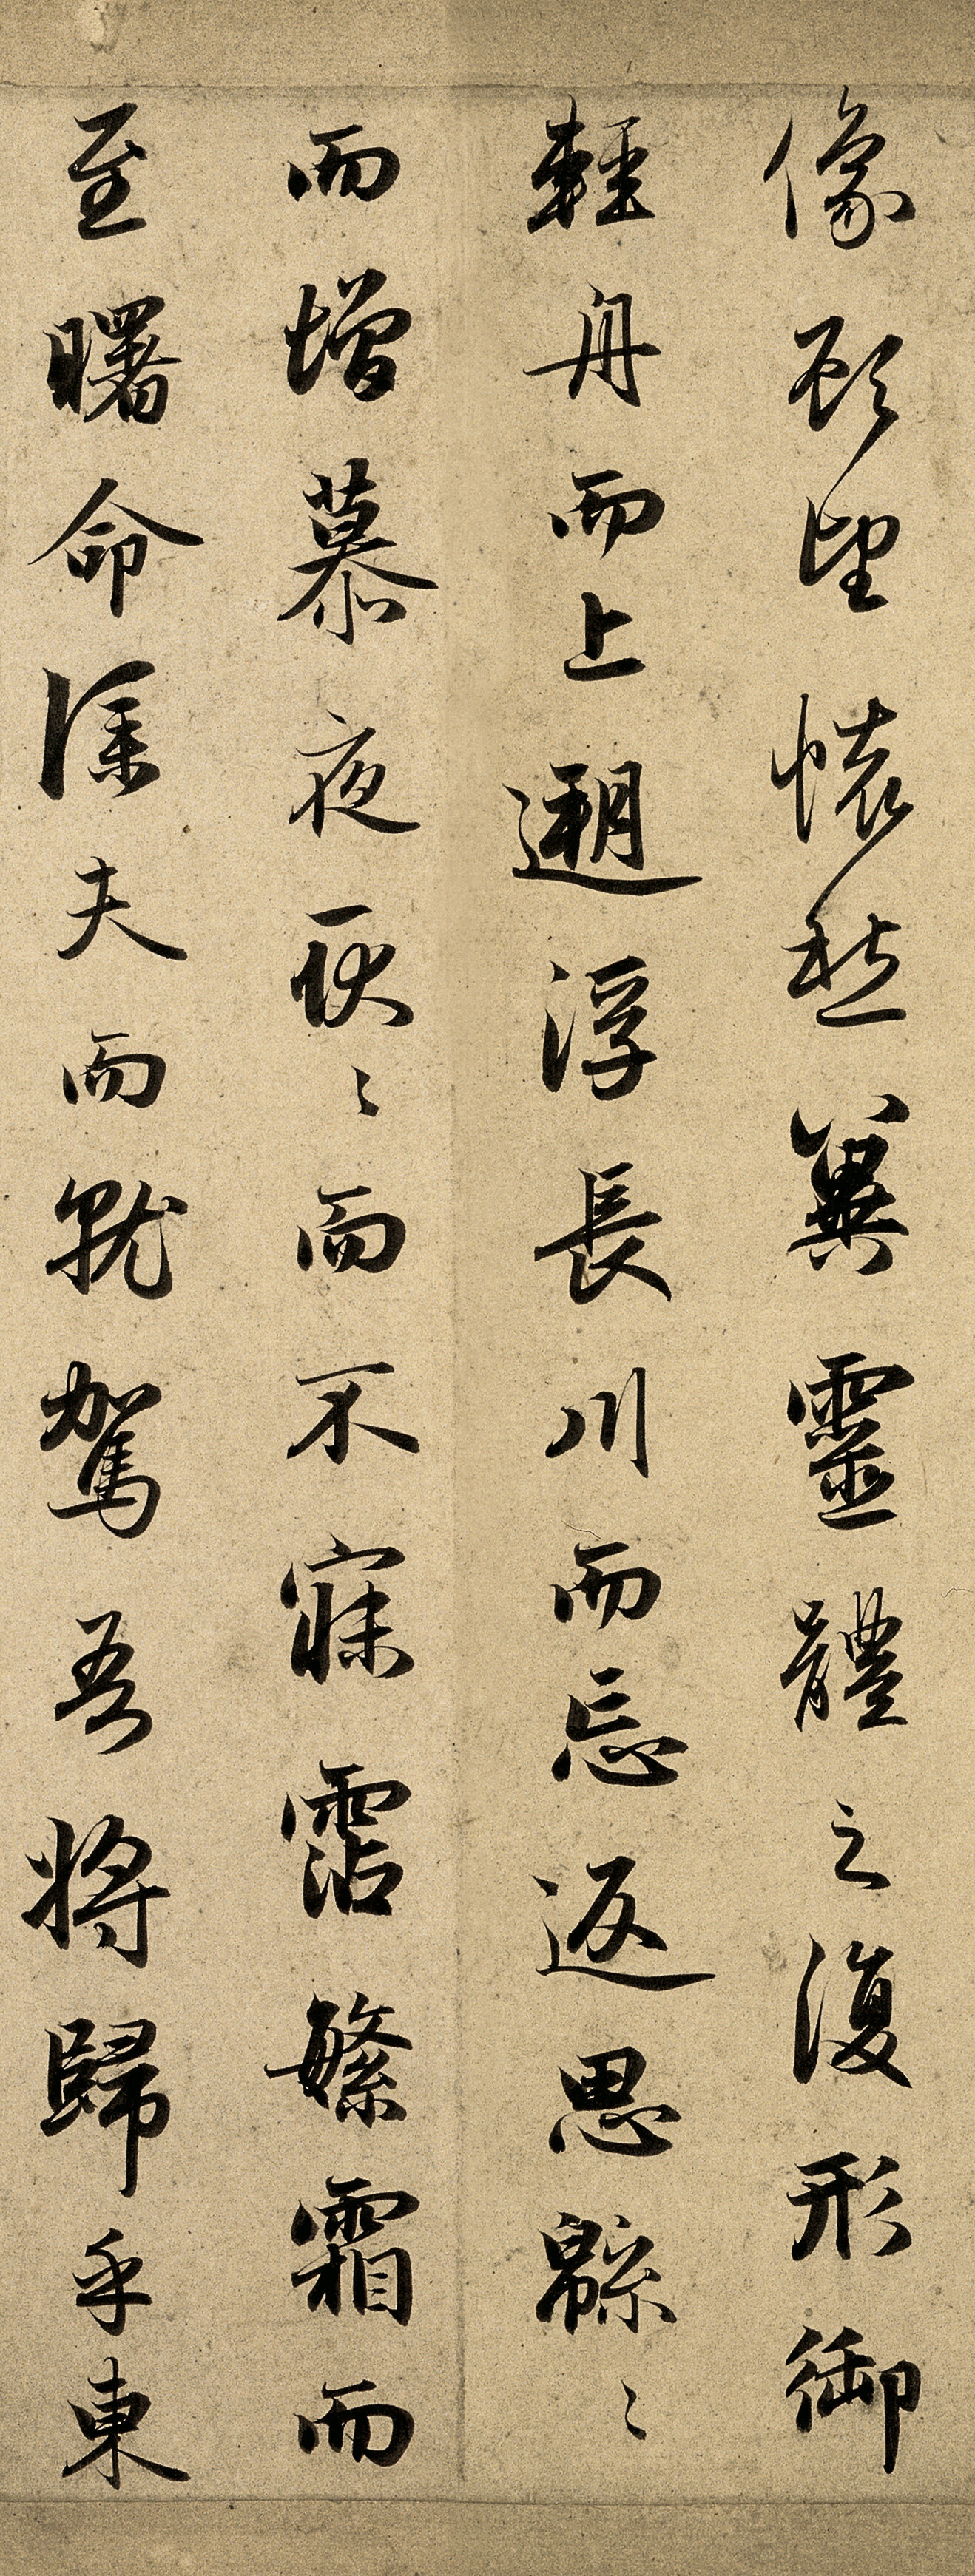 像顧望懷愁冀靈體之復形御
輕舟而上遡浮長川而忘返思緜〻
而增慕夜耿〻而不寐霑繁霜而
至曙命僕夫而就駕吾將歸乎東